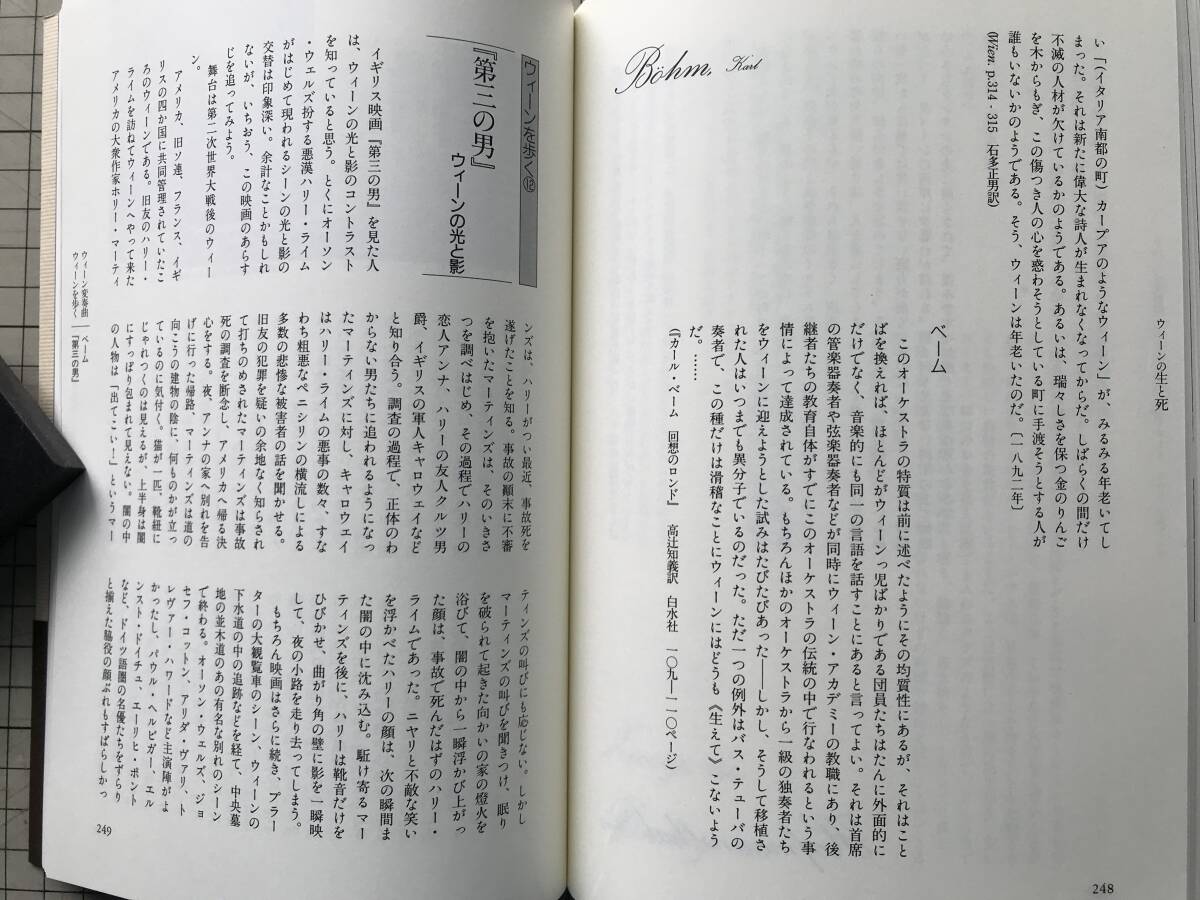 ウィーンの生と死
い「(イタリア南都の町)カープアのようなウィーン」が、みるみる年老いてし
まった。それは新たに偉大な詩人が生まれなくなってからだ。しばらくの間だけ
不滅の人材が欠けているかのようである。あるいは、瑞々しさを保つ金のりんご
を木からもぎ、この傷つき人の心を惑わそうとしている町に手渡そうとする人が
誰もいないかのようである。そう、ウィーンは年老いたのだ。〔一八九二年〕
(Wien. p.314・315 石多正男訳)
Böhm, Karl
ベーム
このオーケストラの特質は前に述べたようにその均質性にあるが、それはこと
ばを換えれば、ほとんどがウィーンっ児ばかりである団員たちはたんに外面的に
だけでなく、音楽的にも同一の言語を話すことにあると言ってよい。それは首席
の管楽器奏者や弦楽器奏者などが同時にウィーン・アカデミーの教職にあり、後
継者たちの教育自体がすでにこのオーケストラの伝統の中で行なわれるという事
情によって達成されている。もちろんほかのオーケストラから一級の独奏者たち
をウィーンに迎えようとした試みはたびたびあった――しかし、そうして移植さ
れた人はいつまでも異分子でいるのだった。ただ一つの例外はバス・テューバの
奏者で、この種だけは滑稽なことにウィーンにはどうも《生えて》こないよう
だ。……
(『カール・ベーム 回想のロンド』 高辻知義訳 白水社 一〇九―一一〇ページ)
248
ウィーンを歩く⑫
『第三の男』
ウィーンの光と影
イギリス映画『第三の男』を見た人
は、ウィーンの光と影のコントラスト
を知っていると思う。とくにオーソン
・ウェルズ扮する悪漢ハリー・ライム
がはじめて現われるシーンの光と影の
交替は印象深い。余計なことかもしれ
ないが、いちおう、この映画のあらす
じを追ってみよう。
舞台は第二次世界大戦後のウィー
ン。
アメリカ、旧ソ連、フランス、イギ
リスの四か国に共同管理されていたこ
ろのウィーンである。旧友のハリー・
ライムを訪ねてウィーンへやって来た
アメリカの大衆作家ホリー・マーティ
ンズは、ハリーがつい最近、事故死を
遂げたことを知る。事故の顛末に不審
を抱いたマーティンズは、そのいきさ
つを調べはじめ、その過程でハリーの
恋人アンナ、ハリーの友人クルツ男
爵、イギリスの軍人キャロウェイなど
と知り合う。調査の過程で、正体のわ
からない男たちに追われるようになっ
たマーティンズに対し、キャロウェイ
はハリー・ライムの悪事の数々、すな
わち粗悪なペニシリンの横流しによる
多数の悲惨な被害者の話を聞かせる。
旧友の犯罪を疑いの余地なく知らされ
て打ちのめされたマーティンズは事故
死の調査を断念し、アメリカへ帰る決
心をする。夜、アンナの家へ別れを告
げに行った帰路、マーティンズは道の
向こうの建物の陰に、何ものかが立っ
ているのに気付く。猫が一匹、靴紐に
じゃれつくのは見えるが、上半身は闇
にすっぽり包まれて見えない。闇の中
の人物は「出てこい!」というマー
ティンズの叫びにも応じない。しかし
マーティンズの叫びを聞きつけ、眠り
を破られて起きた向かいの家の燈火を
浴びて、闇の中から一瞬浮かび上がっ
た顔は、事故で死んだはずのハリー・
ライムであった。ニヤリと不敵な笑い
を浮かべたハリーの顔は、次の瞬間ま
た闇の中に沈み込む。駈け寄るマー
ティンズを後に、ハリーは靴音だけを
ひびかせ、曲がり角の壁に影を一瞬映
して、夜の小路を走り去ってしまう。
もちろん映画はさらに続き、プラー
ターの大観覧車のシーン、ウィーンの
下水道の中の追跡などを経て、中央墓
地の並木道のあの有名な別れのシーン
で終わる。オーソン・ウェルズ、ジョ
セフ・コットン、アリダ・ヴァリ、ト
レヴァー・ハワードなど主演陣がよ
かったし、パウル・ヘルビガー、エル
ンスト・ドイチュ、エーリヒ・ポント
など、ドイツ語圏の名優たちをずらり
と揃えた脇役の顔ぶれもすばらしかっ
ウィーン変奏曲―ベーム
ウィーンを歩く―『第三の男』
249